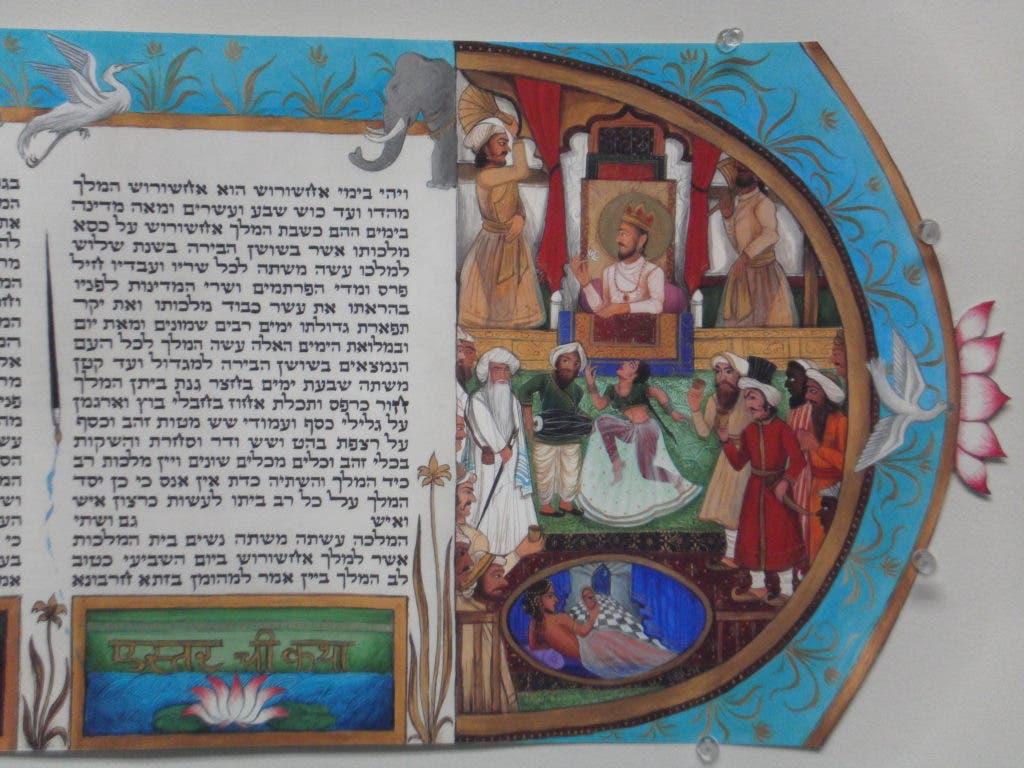 ויהי בימי אחשורוש הוא אחשורוש המלך
מהדו ועד כוש שבע ועשרים ומאה מדינה
בימים ההם כשבת המלך אחשורוש על כסא
מלכותו אשר בשושן הבירה בשנת שלוש
למלכו עשה משתה לכל שריו ועבדיו חיל
פרס ומדי הפרתמים ושרי המדינות לפניו
בהראתו את עשר כבוד מלכותו ואת יקר
תפארת גדולתו ימים רבים שמונים ומאת יום
ובמלואת הימים האלה עשה המלך לכל העם
הנמצאים בשושן הבירה למגדול ועד קטן
משתה שבעת ימים בחצר גנת ביתן המלך
חור כרפס ותכלת אחוז בחבלי בוץ וארגמן
על גלילי כסף ועמודי שש מטות זהב וכסף
על רצפת בהט ושש ודר וסחרת והשקות
בכלי זהב וכלים מכלים שונים ויין מלכות רב
כיד המלך והשתיה כדת אין אנס כי כן יסד
המלך על כל רב ביתו לעשות כרצון איש
ואיש גם ושתי
המלכה עשתה משתה נשים בית המלכות
אשר למלך אחשורוש ביום השביעי כטוב
לב המלך ביין אמר למהומן בזתא חרבונא
एस्तर ची कथा